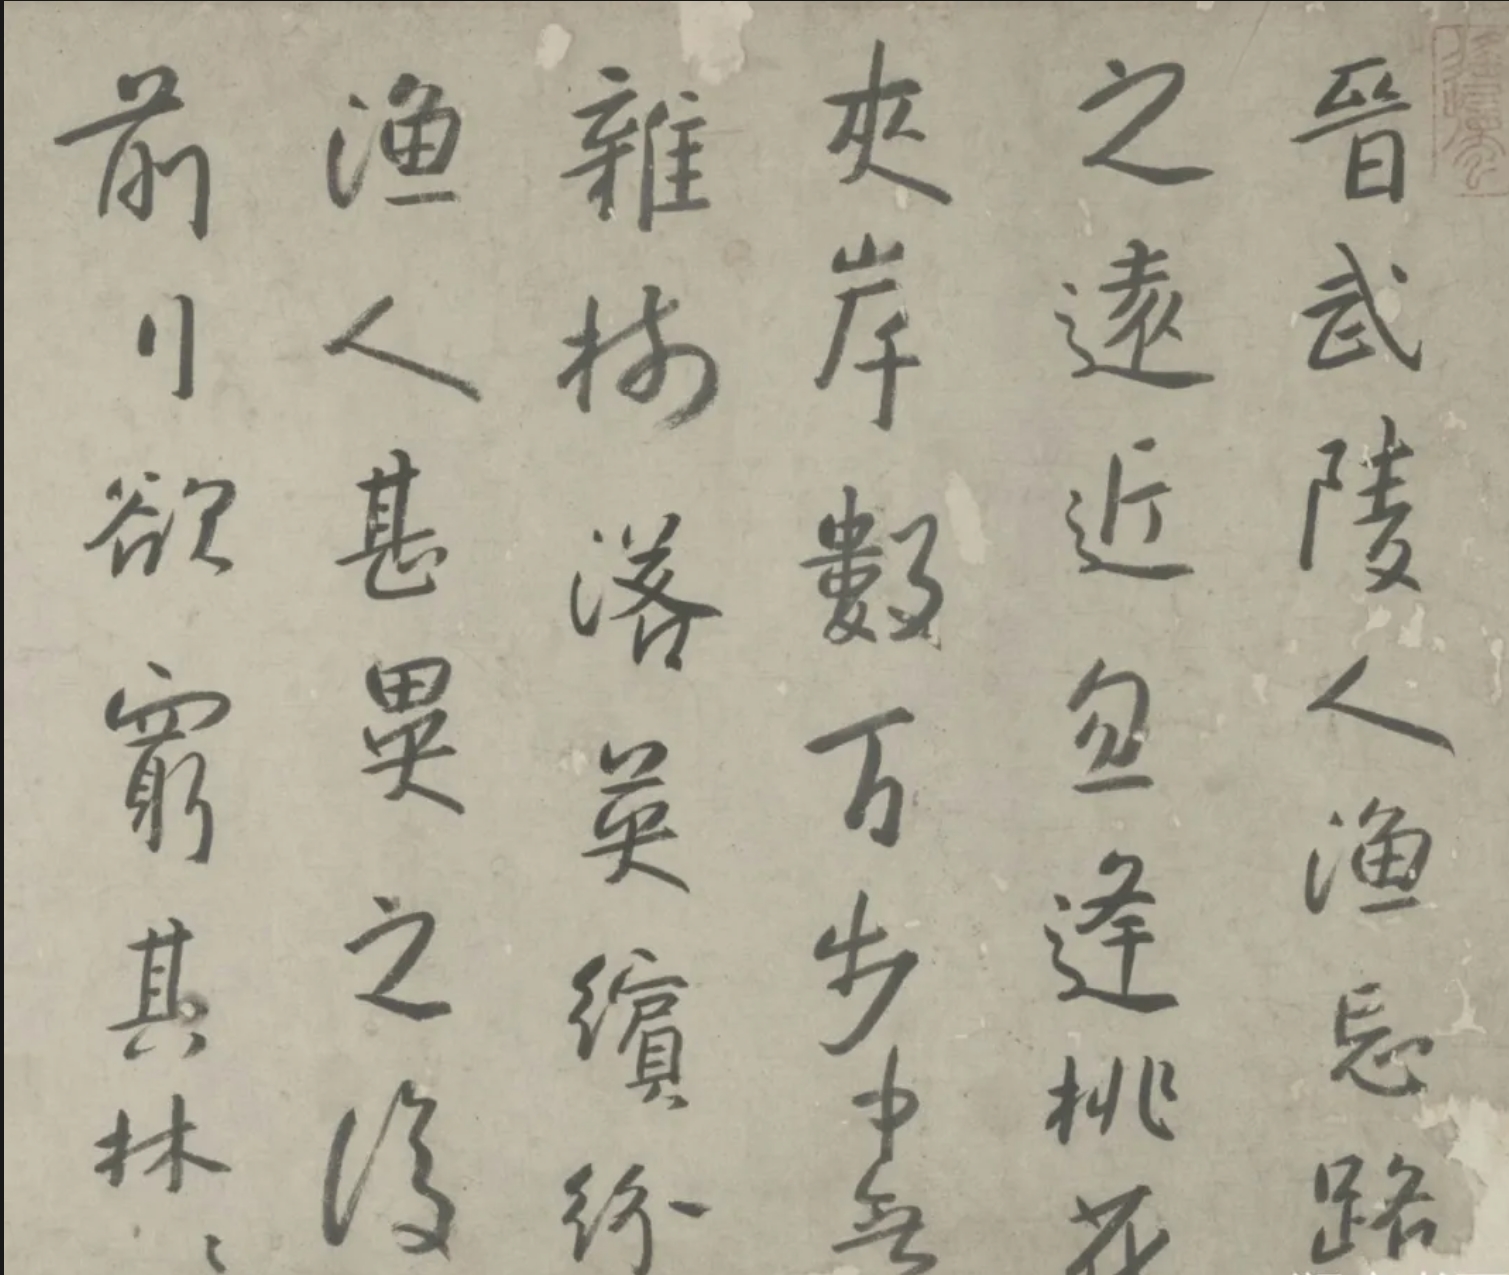 晉武陵人渔忘路
之遠近忽逢桃花
夾岸數百步中無
雜樹落英繽紛
渔人甚異之復
前行欲窮其林林